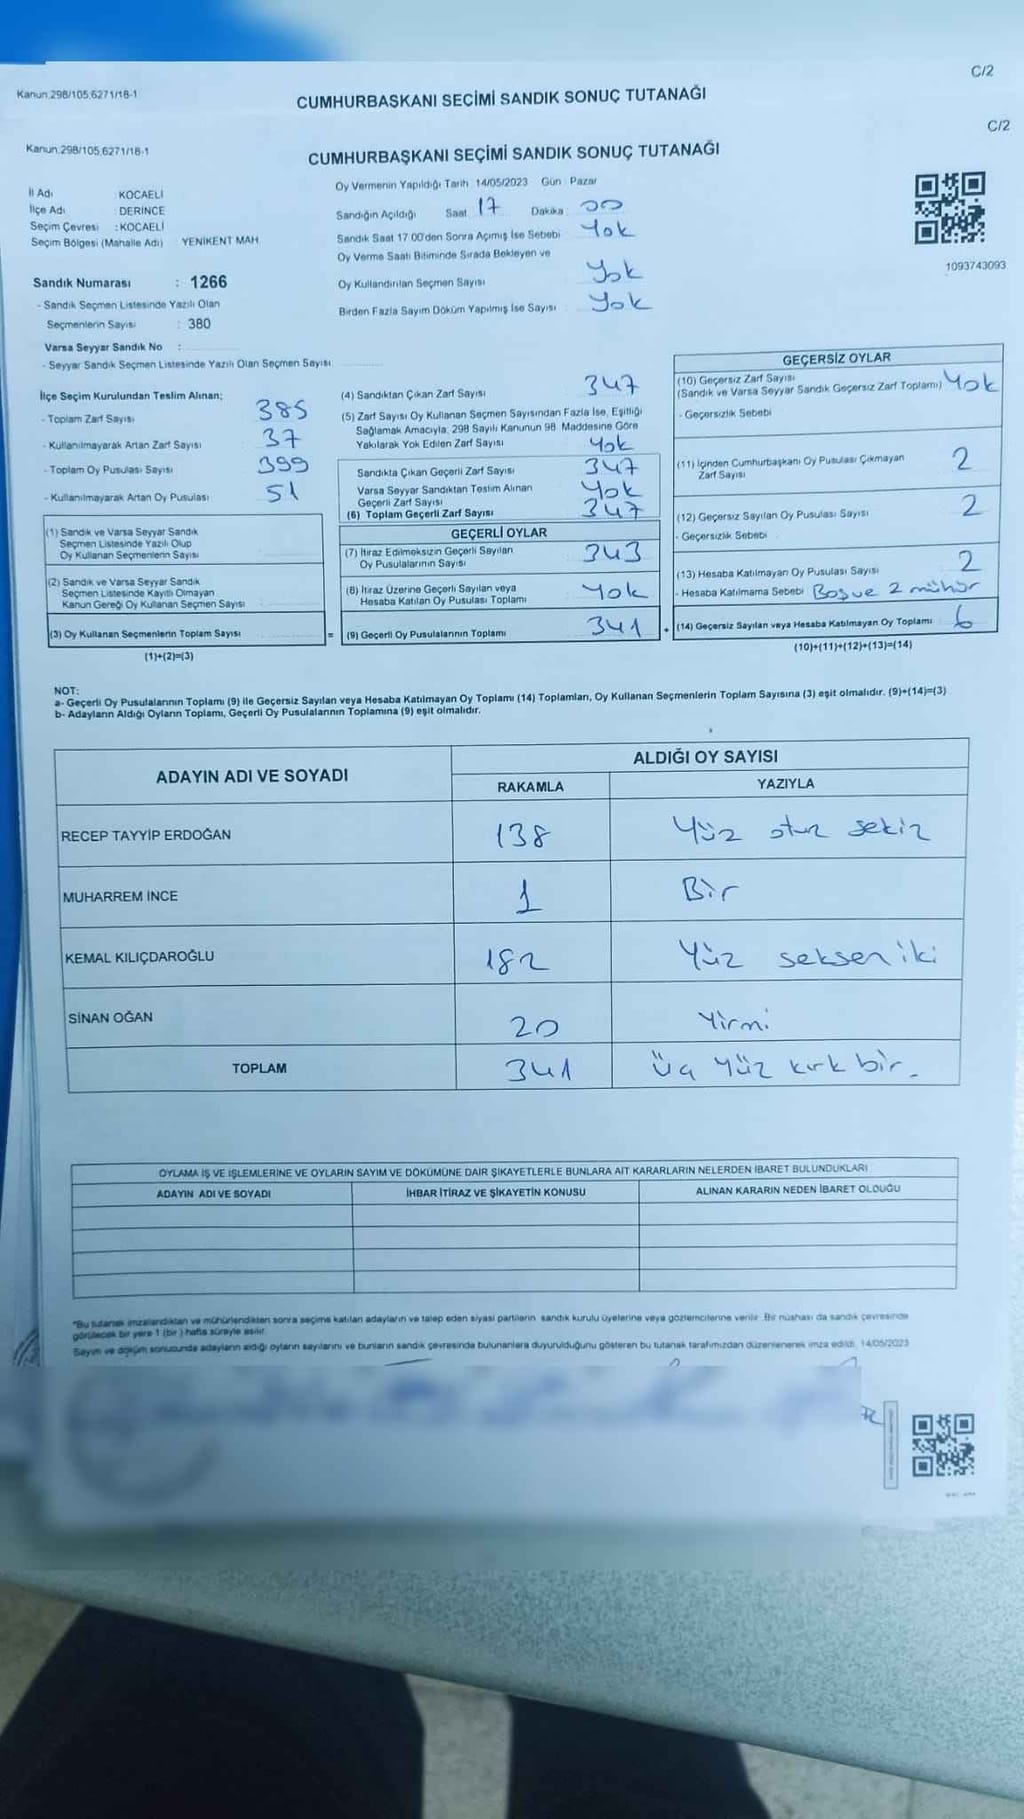 C/2
Kanun.298/105,6271/18-1
CUMHURBAŞKANI SEÇİMİ SANDIK SONUÇ TUTANAĞI
C/2
Kanun.298/105,6271/18-1
CUMHURBAŞKANI SEÇİMİ SANDIK SONUÇ TUTANAĞI
İl Adı : KOCAELİ
İlçe Adı : DERİNCE
Seçim Çevresi : KOCAELİ
Seçim Bölgesi (Mahalle Adı) YENİKENT MAH.
Sandık Numarası : 1266
- Sandık Seçmen Listesinde Yazılı Olan
Seçmenlerin Sayısı : 380
Varsa Seyyar Sandık No :
- Seyyar Sandık Seçmen Listesinde Yazılı Olan Seçmen Sayısı
Oy Vermenin Yapıldığı Tarih 14/05/2023 Gün Pazar
Sandığın Açıldığı Saat 17 Dakika 00
Sandık Saat 17:00'den Sonra Açımış İse Sebebi Yok
Oy Verme Saati Bitiminde Sırada Bekleyen ve
Oy Kullandırılan Seçmen Sayısı Yok
Birden Fazla Sayım Döküm Yapılmış İse Sayısı Yok
1093743093
İlçe Seçim Kurulundan Teslim Alınan;
- Toplam Zarf Sayısı 385
- Kullanılmayarak Artan Zarf Sayısı 37
- Toplam Oy Pusulası Sayısı 399
- Kullanılmayarak Artan Oy Pusulası 51
(1) Sandık ve Varsa Seyyar Sandık
Seçmen Listesinde Yazılı Olup
Oy Kullanan Seçmenlerin Sayısı
(2) Sandık ve Varsa Seyyar Sandık
Seçmen Listesinde Kayıtlı Olmayan
Kanun Gereği Oy Kullanan Seçmen Sayısı
(3) Oy Kullanan Seçmenlerin Toplam Sayısı
(1)+(2)=(3)
(4) Sandıktan Çıkan Zarf Sayısı 347
(5) Zarf Sayısı Oy Kullanan Seçmen Sayısından Fazla İse, Eşitliği
Sağlamak Amacıyla, 298 Sayılı Kanunun 98. Maddesine Göre
Yakılarak Yok Edilen Zarf Sayısı Yok
Sandıkta Çıkan Geçerli Zarf Sayısı 347
Varsa Seyyar Sandıktan Teslim Alınan
Geçerli Zarf Sayısı Yok
(6) Toplam Geçerli Zarf Sayısı 347
GEÇERLİ OYLAR
(7) İtiraz Edilmeksizin Geçerli Sayılan
Oy Pusulalarının Sayısı 343
(8) İtiraz Üzerine Geçerli Sayılan veya
Hesaba Katılan Oy Pusulası Toplamı Yok
= (9) Geçerli Oy Pusulalarının Toplamı 341 +
GEÇERSİZ OYLAR
(10) Geçersiz Zarf Sayısı
(Sandık ve Varsa Seyyar Sandık Geçersiz Zarf Toplamı) Yok
- Geçersizlik Sebebi
(11) İçinden Cumhurbaşkanı Oy Pusulası Çıkmayan
Zarf Sayısı 2
(12) Geçersiz Sayılan Oy Pusulası Sayısı 2
- Geçersizlik Sebebi
(13) Hesaba Katılmayan Oy Pusulası Sayısı 2
- Hesaba Katılmama Sebebi Boş ve 2 mühür
(14) Geçersiz Sayılan veya Hesaba Katılmayan Oy Toplamı 6
(10)+(11)+(12)+(13)=(14)
NOT:
a- Geçerli Oy Pusulalarının Toplamı (9) ile Geçersiz Sayılan veya Hesaba Katılmayan Oy Toplamı (14) Toplamları, Oy Kullanan Seçmenlerin Toplam Sayısına (3) eşit olmalıdır. (9)+(14)=(3)
b- Adayların Aldığı Oyların Toplamı, Geçerli Oy Pusulalarının Toplamına (9) eşit olmalıdır.
ADAYIN ADI VE SOYADI
ALDIĞI OY SAYISI
RAKAMLA YAZIYLA
RECEP TAYYİP ERDOĞAN 138 Yüz otuz sekiz
MUHARREM İNCE 1 Bir
KEMAL KILIÇDAROĞLU 182 Yüz seksen iki
SİNAN OĞAN 20 Yirmi
TOPLAM 341 Üç yüz kırk bir.
OYLAMA İŞ VE İŞLEMLERİNE VE OYLARIN SAYIM VE DÖKÜMÜNE DAİR ŞİKAYETLERLE BUNLARA AİT KARARLARIN NELERDEN İBARET BULUNDUKLARI
ADAYIN ADI VE SOYADI İHBAR İTİRAZ VE ŞİKAYETİN KONUSU ALINAN KARARIN NEDEN İBARET OLDUĞU
*Bu tutanak imzalandıktan ve mühürlendikten sonra seçime katılan adayların ve talep eden siyasi partilerin sandık kurulu üyelerine veya gözlemcilerine verilir. Bir nüshası da sandık çevresinde
görülecek bir yere 1 (bir) hafta süreyle asılır.
Sayım ve döküm sonucunda adayların aldığı oyların sayılarını ve bunların sandık çevresinde bulunanlara duyurulduğunu gösteren bu tutanak tarafımızdan düzenlenerek imza edildi. 14/05/2023